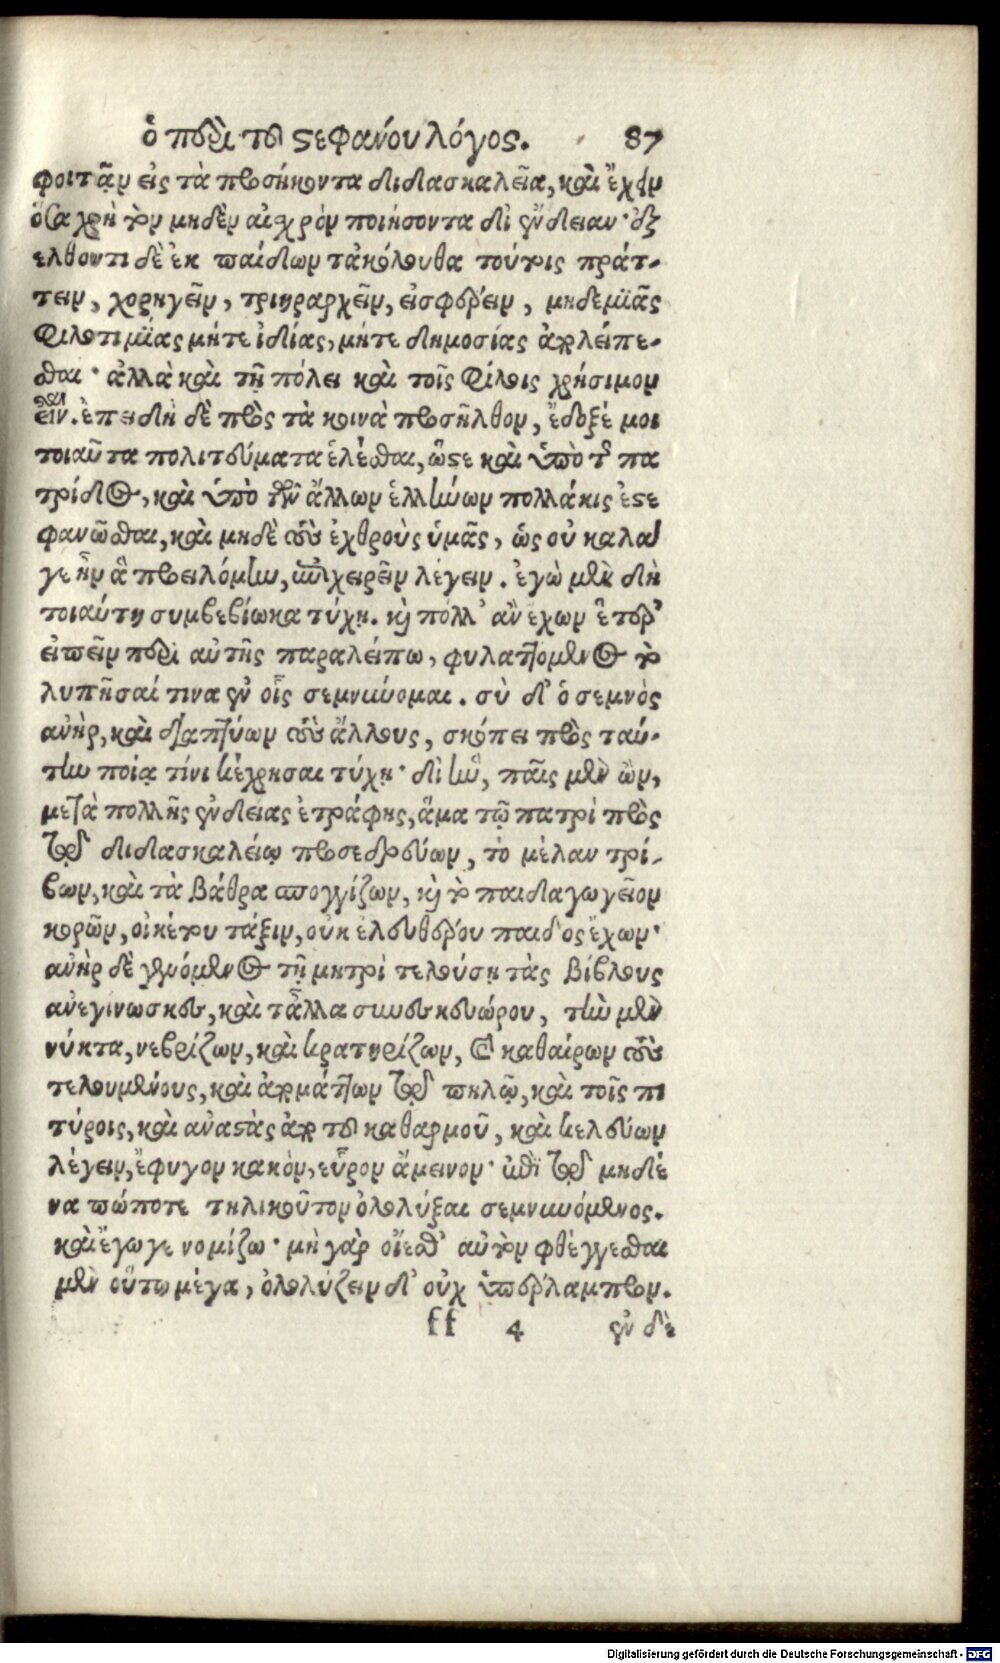 ὁ περὶ τοῦ στεφάνου λόγος. 87
φοιτᾷν εἰς τὰ προσήκοντα διδασκαλεῖα, καὶ ἔχειν
ὅσα χρὴ τὸν μηδὲν αἰσχρὸν ποιήσοντα δι' ἔνδειαν· ἐξ
ελθοντι δὲ ἐκ παίδων τἀκόλουθα τούτοις πράτ-
τειν, χορηγεῖν, τριηραρχεῖν, εἰσφέρειν, μηδεμϊᾶς
φιλοτιμϊας μήτε ἰδίας, μήτε δημοσίας ἀπολείπε-
σθαι· ἀλλὰ καὶ τῇ πόλει καὶ τοῖς φίλοις χρήσιμον
εἶν. ἐπειδὴ δὲ πρὸς τὰ κοινὰ προσῆλθον, ἔδοξέ μοι
σαι
τοιαῦτα πολιτεύματα ἑλέσθαι, ὥστε καὶ ὑπὸ τῆς πα
τρίδος, καὶ ὑπὸ τῶν ἄλλων ἑλλήνων πολλάκις ἐστε
φανῶσθαι, καὶ μηδὲ τοὺς ἐχθροὺς ὑμᾶς, ὡς οὐ καλά
γε ἦν ἃ προειλόμην, ἐπιχειρεῖν λέγειν. ἐγὼ μὲν δὴ
τοιαύτῃ συμβεβίωκα τύχῃ. καὶ πόλλ' ἂν ἔχων ἕτερ'
εἰπεῖν περὶ αὐτῆς παραλείπω, φυλαττόμενος τὸ
λυπῆσαί τινα ἐν οἷς σεμνύνομαι. σὺ δ' ὁ σεμνὸς
ἀνὴρ, καὶ διαπτύων τοὺς ἄλλους, σκόπει πρὸς ταύ-
την ποίᾳ τίνι κέχρησαι τύχῃ· δι' ἣν, παῖς μὲν ὢν,
μετὰ πολλῆς ἐνδείας ἐτράφης, ἅμα τῷ πατρὶ πρὸς
τῷ διδασκαλείῳ προσεδρεύων, τὸ μέλαν τρί-
βων, καὶ τὰ βάθρα σπογγίζων, καὶ τὸ παιδαγωγεῖον
κορῶν, οἰκέτου τάξιν, οὐκ ἐλευθέρου παιδὸς ἔχων·
ἀνὴρ δὲ γενόμενος τῇ μητρὶ τελούσῃ τὰς βίβλους
ἀνεγίνωσκες, καὶ τἆλλα συνεσκευώρου, τὴν μὲν
νύκτα, νεβρίζων, καὶ κρατηρίζων, καὶ καθαίρων τοὺς
τελουμένους, καὶ ἀπομάττων τῷ πηλῷ, καὶ τοῖς πι
τύροις, καὶ ἀναστὰς ἀπὸ τοῦ καθαρμοῦ, καὶ κελεύων
λέγειν, ἔφυγον κακὸν, εὗρον ἄμεινον· ἐπὶ τῷ μηδέ
να πώποτε τηλικοῦτον ὀλολύξαι σεμνυνόμενος.
καὶ ἔγωγε νομίζω· μὴ γὰρ οἴεσθ' αὐτὸν φθέγγεσθαι
μὲν οὕτω μέγα, ὀλολύζειν δ' οὐχ ὑπέρλαμπρον.
ff 4 ἐν δὲ
Digitalisierung gefördert durch die Deutsche Forschungsgemeinschaft - DFG